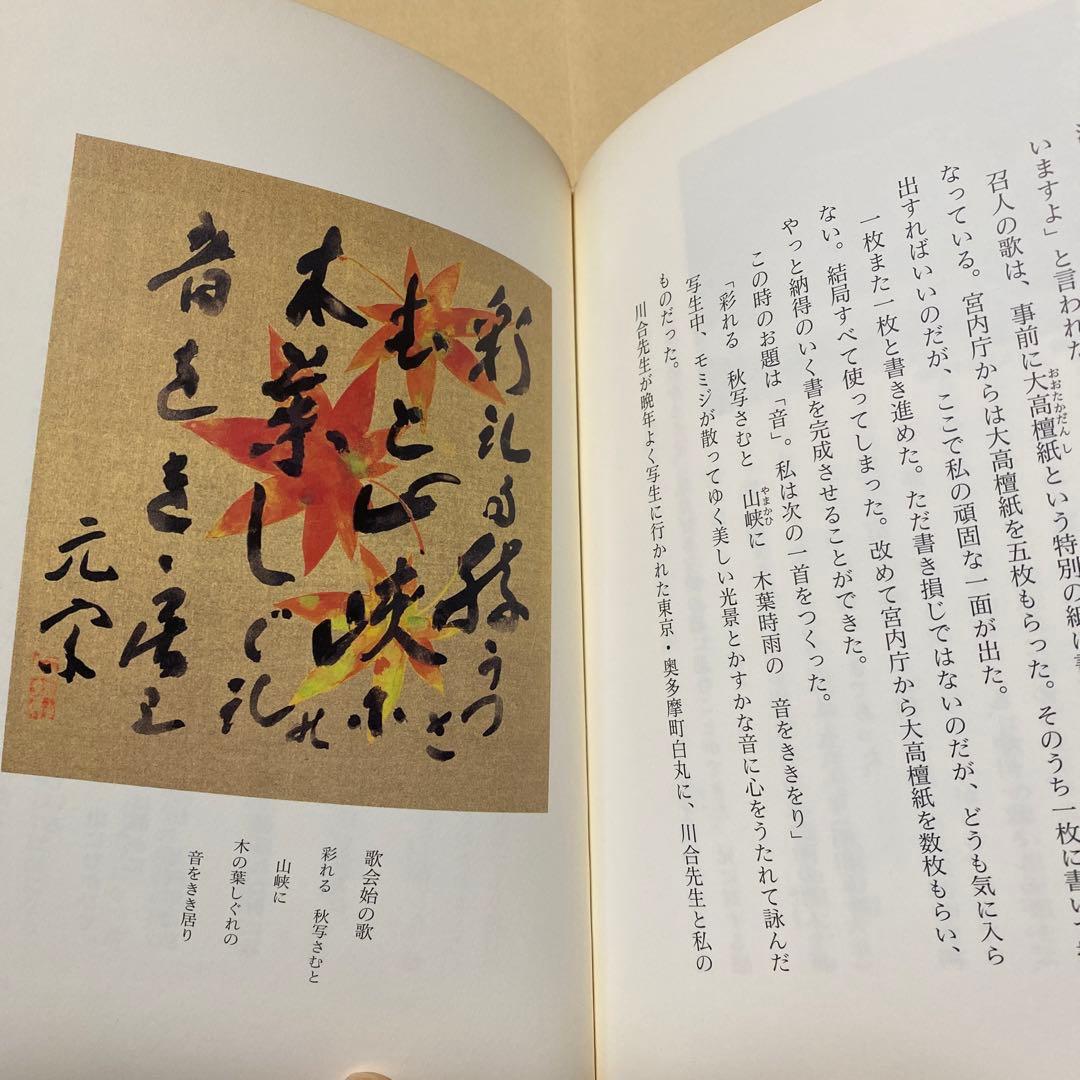 いますよ」と言われた
召人の歌は、事前に大高檀紙という特別の紙に書
おおたかだんし
なっている。宮内庁からは大高檀紙を五枚もらった。そのうち一枚に書いて
出すればいいのだが、ここで私の頑固な一面が出た。
一枚また一枚と書き進めた。ただ書き損じではないのだが、どうも気に入ら
ない。結局すべて使ってしまった。改めて宮内庁から大高檀紙を数枚もらい、
やっと納得のいく書を完成させることができた。
この時のお題は「音」。私は次の一首をつくった。
「彩れる　秋写さむと　山峡に　木葉時雨の　音をききをり」
やまかひ
写生中、モミジが散ってゆく美しい光景とかすかな音に心をうたれて詠んだ
ものだった。
川合先生が晩年よく写生に行かれた東京・奥多摩町白丸に、川合先生と私の
彩礼る秋うつさ
むと山峡尓
木葉しぐ礼の
音をきゝ居里
元宋
歌会始の歌
彩れる　秋写さむと
山峡に
木の葉しぐれの
音をきき居り